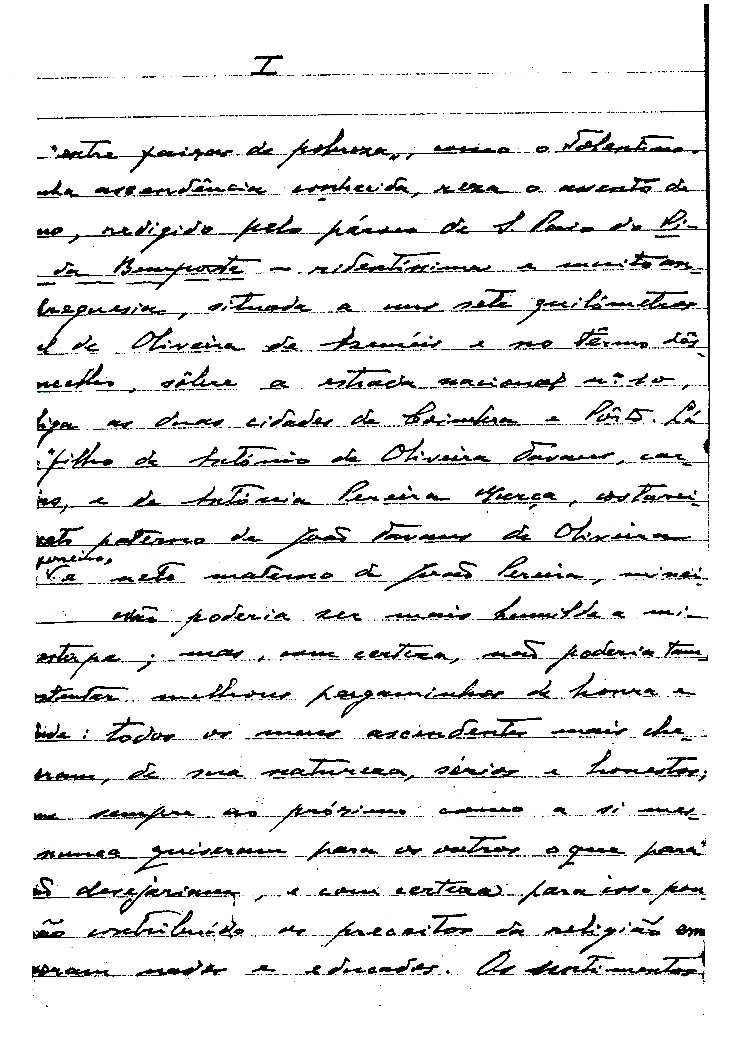 I
"entre faixas de pobreza", como o Tolentino.
nha ascendência conhecida, reza o assento de
mo, redigido pelo pároco de S. Paio de Pi-
da Bemposta – ridentíssima e muito an-
freguesia, situada a uns sete quilómetros
de Oliveira de Azeméis e no termo dês-
ncelho, sôbre a estrada nacional nº 10,
liga as duas cidades de Coimbra e Pôrto. Lá
"filho de António de Oliveira Tavares, car-
ro, e de Antónia Pereira Murça, costurei-
neto paterno de João Tavares de Oliveira
e neto materno de João Pereira, minei-
Não poderia ser mais humilde a mi-
estirpe; mas, com certeza, não poderia tam
stentar melhores pergaminhos de honra e
ade: todos os meus ascendentes mais che-
eram, de sua natureza, sérios e honestos;
am sempre ao próximo como a si mes-
nunca quiseram para os outros o que para
desejariam, e com certeza para isso pou
ão contribuído os preceitos da religião em
oram nados e educados. Os sentimentos